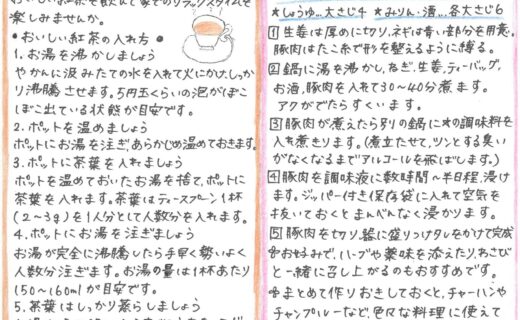 楽しみませんか。
・おいしい紅茶の入れ方・
1. お湯を沸かしましょう
やかんに汲みたての水を入れて火にかけ、しっか
り沸騰させます。5円玉くらいの泡がぼこ
ぼこ出ている状態が目安です。
2. ポットを温めましょう
ポットにお湯を注ぎ、あらかじめ温めておきます。
3. ポットに茶葉を入れましょう
ポットを温めておいたお湯を捨て、ポットに
茶葉を入れます。茶葉はティースプーン1杯
(2~3g)を1人分として人数分を入れます。
4. ポットにお湯を注ぎましょう
お湯が完全に沸騰したら手早く勢いよく
人数分注ぎます。お湯の量は1杯あたり
150~160mlが目安です。
5. 茶葉はしっかり蒸らしましょう
★しょうゆ…大さじ4 ★みりん・酒…各大さじ6
1 生姜は厚めに切り、ネギは青い部分を用意。
豚肉はたこ糸で形を整えるように縛る。
2 鍋に湯を沸かし、ねぎ、生姜、ティーバッグ、
お酒、豚肉を入れて30~40分煮ます。
アクがでたらすくいます。
3 豚肉が煮えたら別の鍋に★の調味料を
入れ煮きります。(煮立たせて、ツンとする臭い
がなくなるまでアルコールを飛ばします。)
4 豚肉を調味液に数時間~半日程、浸け
ます。ジッパー付き保存袋に入れて空気を
抜いておくとまんべんなく浸かります。
5 豚肉を切り、器に盛りつけタレをかけて完成
お好みで、ハーブや薬味を添えたり、わさび
と一緒に召し上がるのもおすすめです。
まとめて作りおきしておくと、チャーハンや
チャンプルーなど、色々な料理に使えて